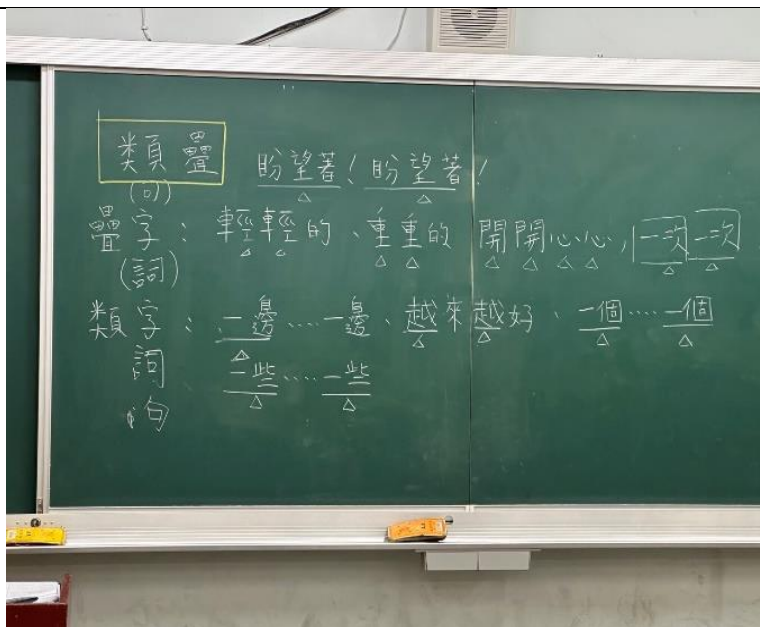 類疊 盼望著！盼望著！
(句)
疊字：輕輕的、重重的 開開心心，一次一次
(詞)
類字：一邊....一邊、越來越好、一個....一個
詞 一些....一些
句